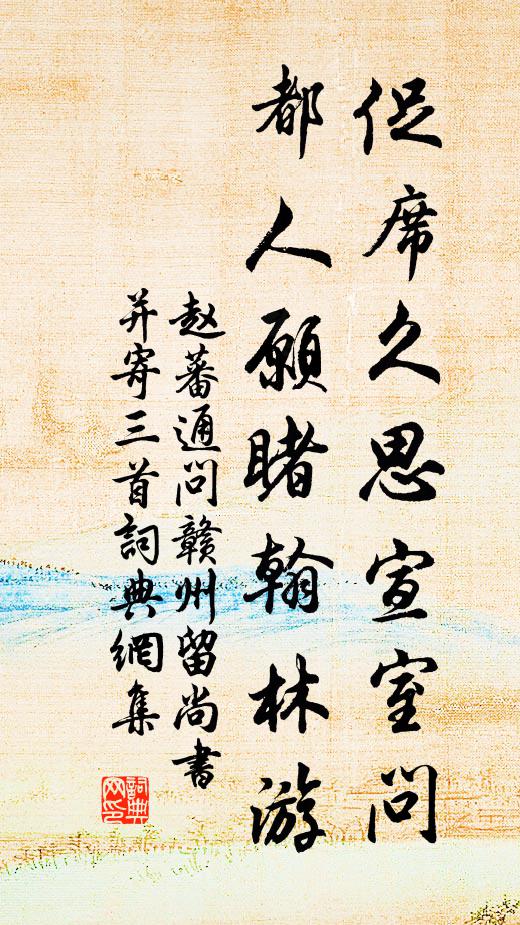 促席久思宣室问
都人願睹翰林游
赵蕃通问赣州留尚書
并寄三首詞典網集
詞典网印